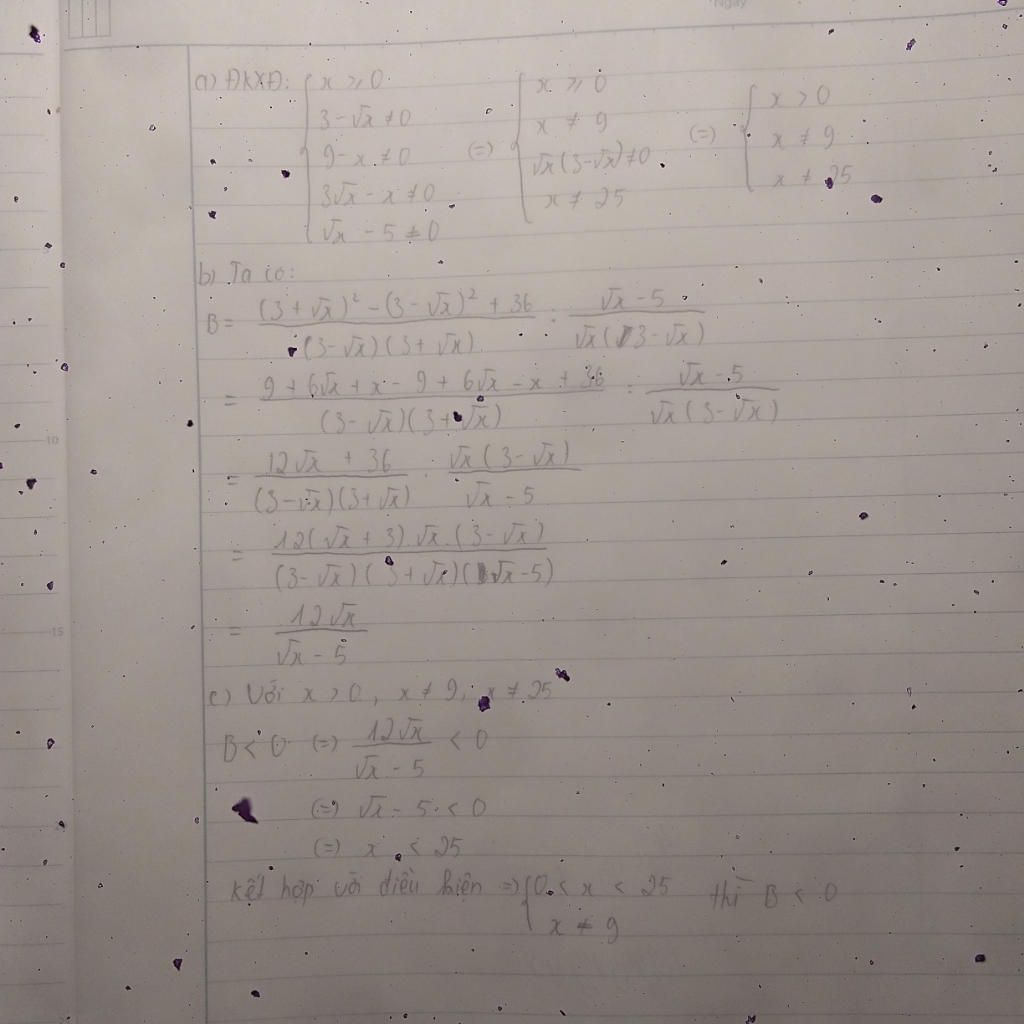 Ngày
a) ĐKXĐ: { x ≥ 0 ; 3 - √x ≠ 0 ; 9 - x ≠ 0 ; 3√x - x ≠ 0 ; √x - 5 ≠ 0 (=) { x ≥ 0 ; x ≠ 9 ; √x(3-√x) ≠ 0 ; x ≠ 25 (=) { x > 0 ; x ≠ 9 ; x ≠ 25
b) Ta có:
B = ((3 + √x)² - (3 - √x)² + 36) / ((3-√x)(3 + √x)) : (√x - 5) / (√x(3 - √x))
= (9 + 6√x + x - 9 + 6√x - x + 36) / ((3 - √x)(3 + √x)) : (√x - 5) / (√x(3 - √x))
10
= (12√x + 36) / ((3-√x)(3+√x)) . (√x(3 - √x)) / (√x - 5)
= (12(√x + 3).√x.(3 - √x)) / ((3-√x)(3+√x)(√x-5))
15
= (12√x) / (√x - 5)
c) Với x > 0, x ≠ 9, x ≠ 25
B < 0 (=) (12√x) / (√x - 5) < 0
(=) √x - 5 < 0
(=) x < 25
Kết hợp với điều kiện => { 0 < x < 25 ; x ≠ 9 thì B < 0